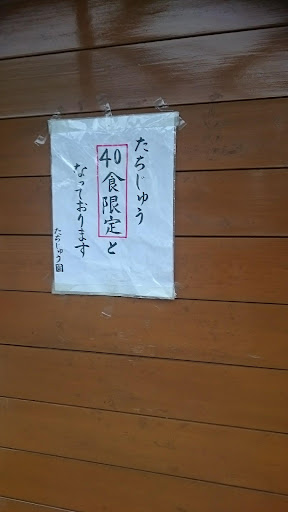 たちじゅう
40食限定と
なっております
たちじゅう園